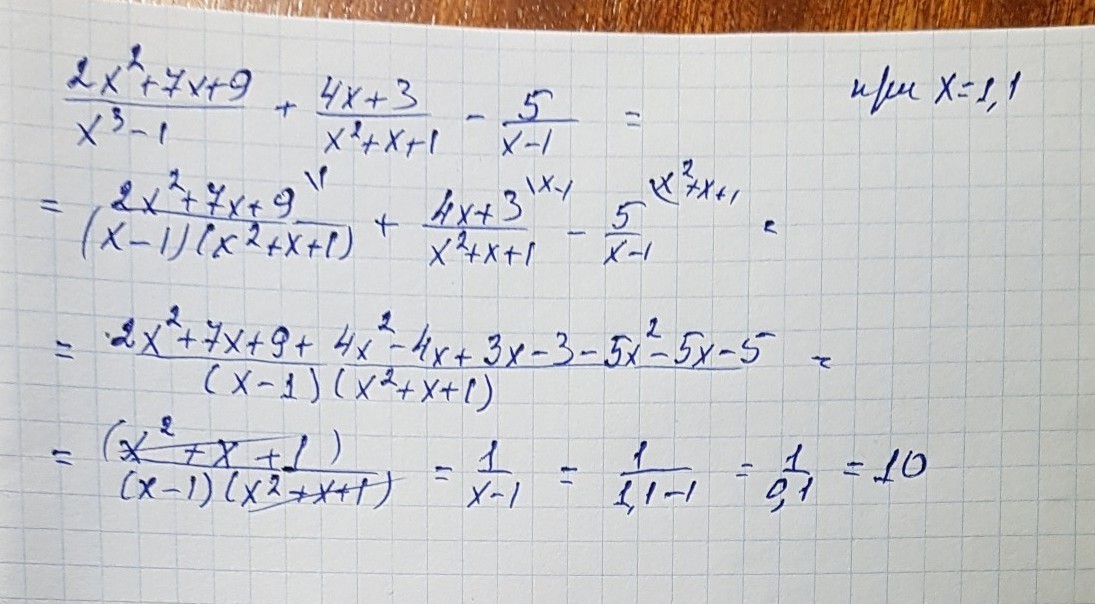 (2x²+7x+9)/(x³-1) + (4x+3)/(x²+x+1) - 5/(x-1) = при x=1,1
= (2x²+7x+9 \1)/((x-1)(x²+x+1)) + (4x+3 \x-1)/(x²+x+1) - (5 \x²+x+1)/(x-1) =
= (2x²+7x+9+4x²-4x+3x-3-5x²-5x-5)/((x-1)(x²+x+1)) =
= (x²+x+1)/((x-1)(x²+x+1)) = 1/(x-1) = 1/(1,1-1) = 1/0,1 = 10